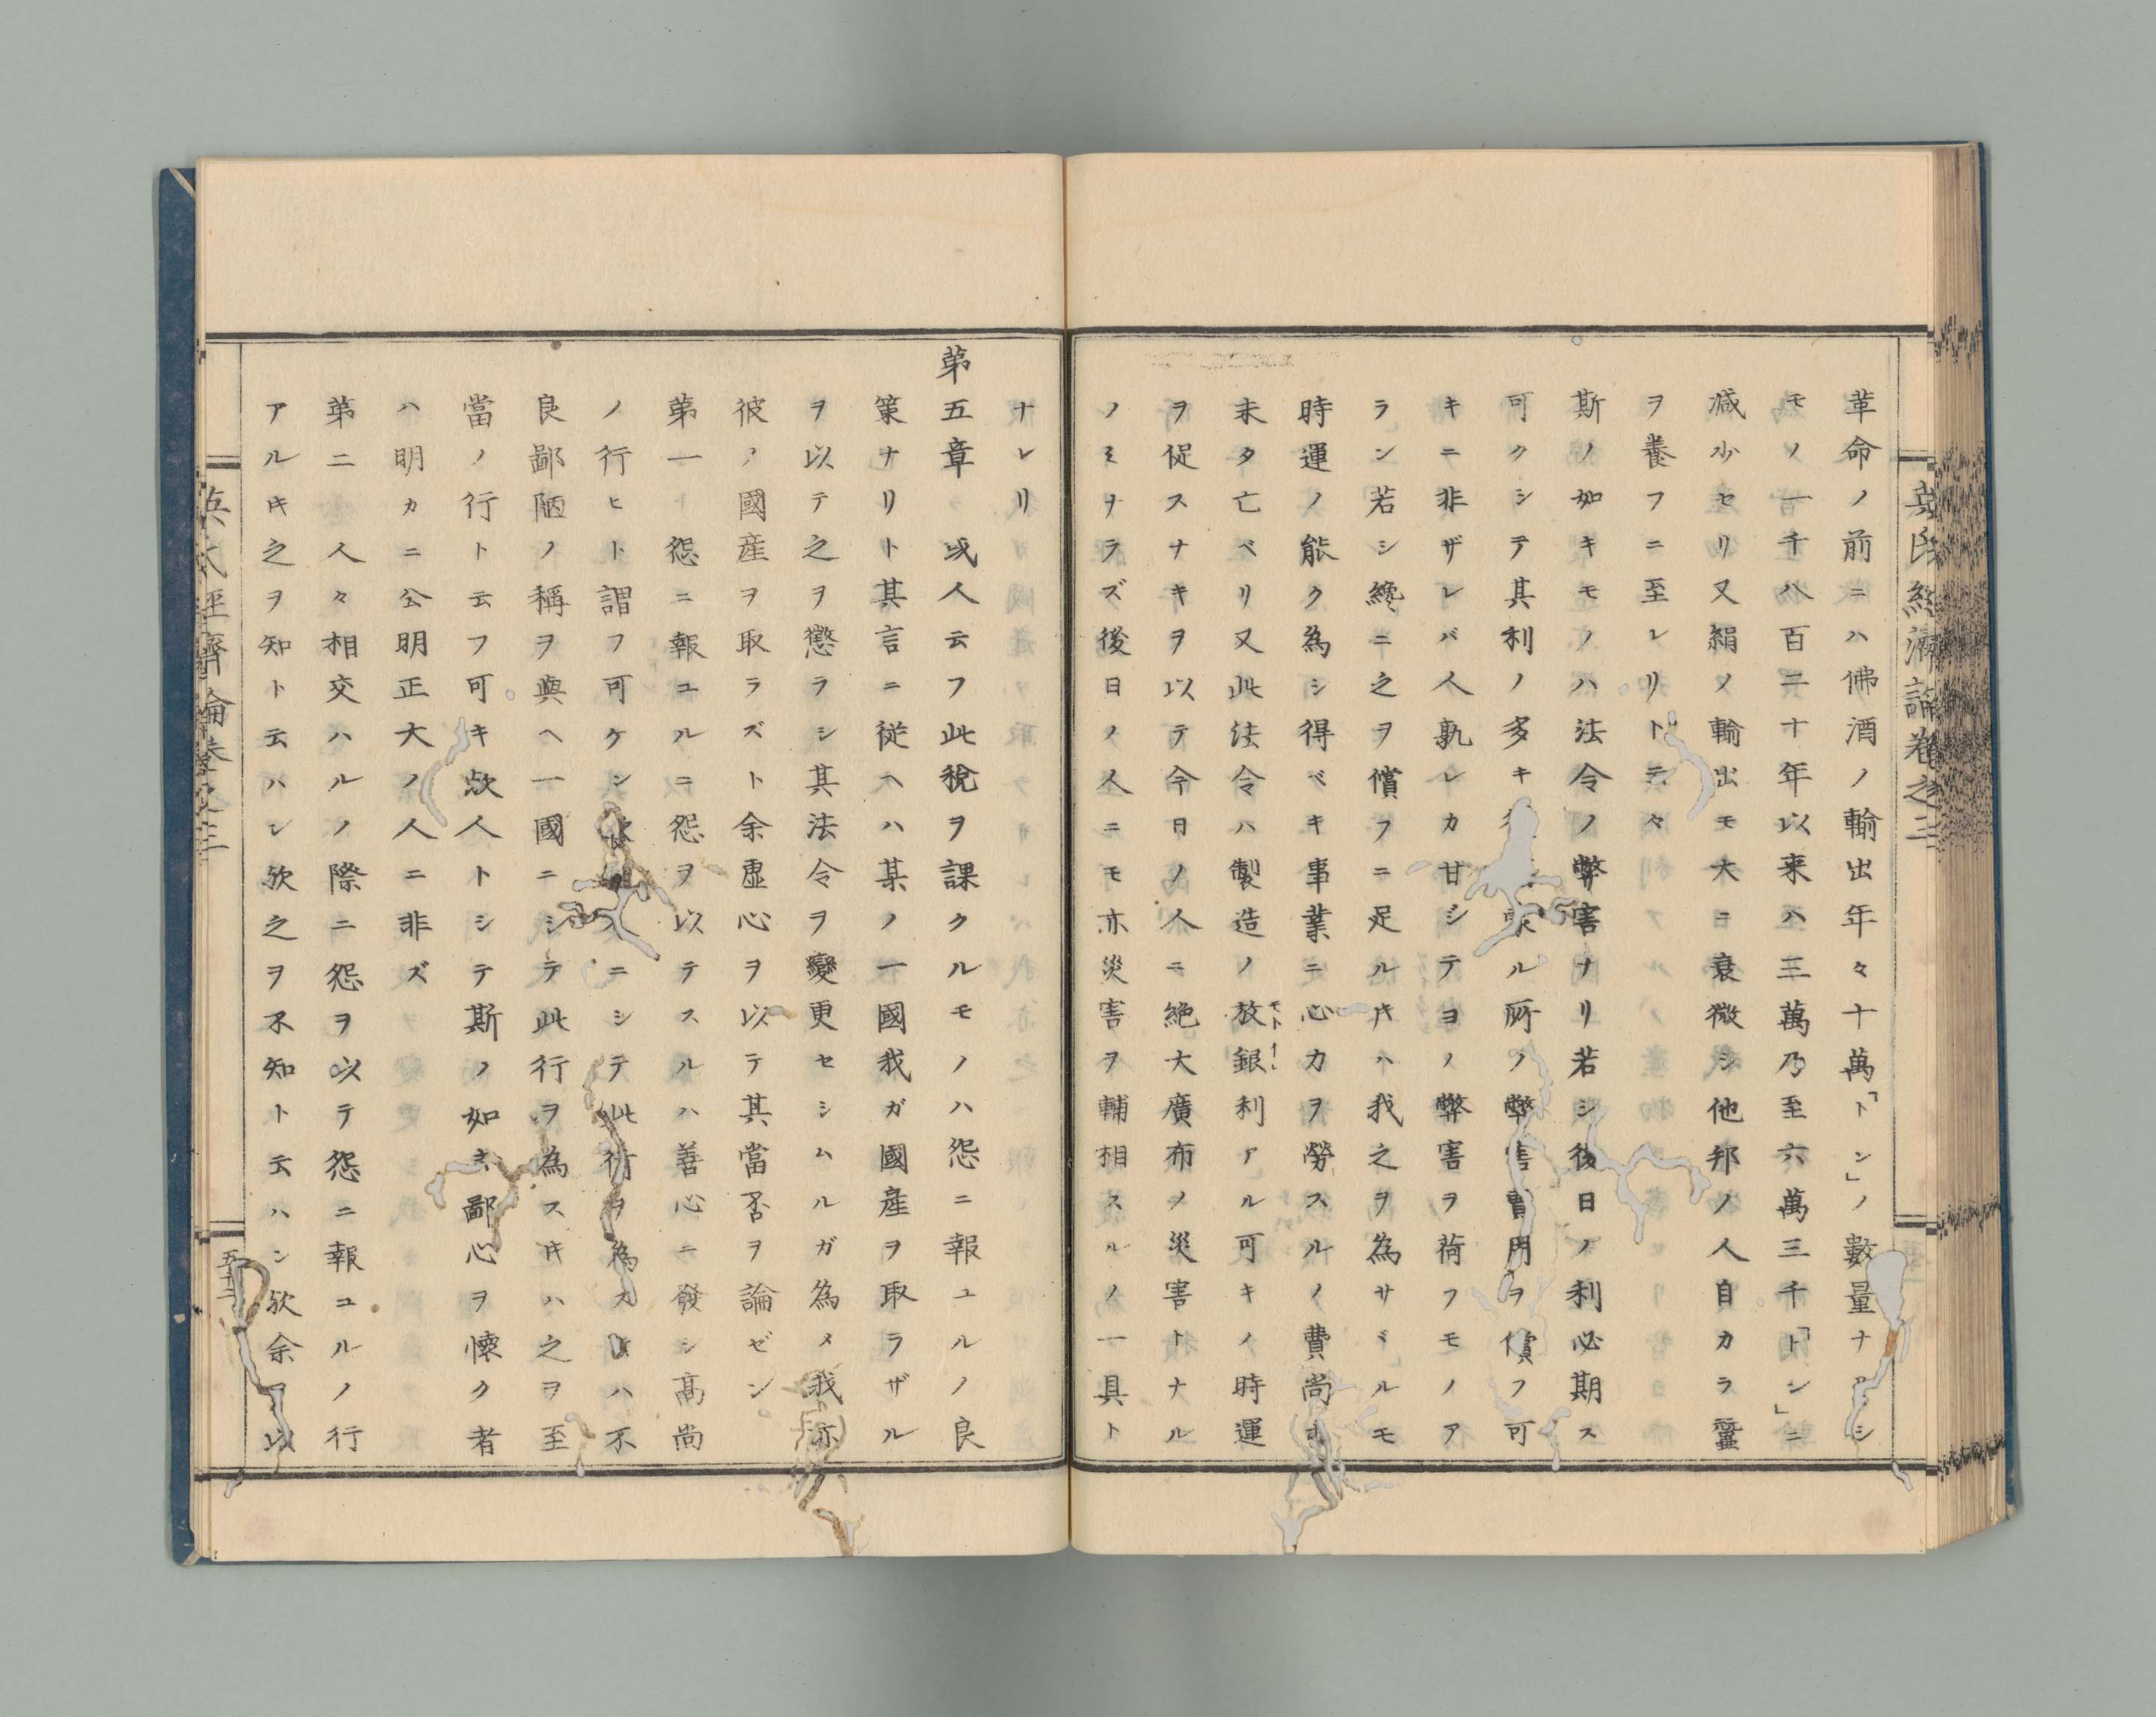 英氏經濟論卷之三
革命ノ前ニハ佛酒ノ輸出年々十萬「トン」ノ數量ナ シ
モノ一千八百二十年以来ハ三萬乃至六萬三千「トン」ニ
減少セリ又絹ノ輸出モ大ニ衰微シ他邦ノ人自カラ蠶
ヲ養フニ至レリト云々
斯ノ如キモノハ法令ノ弊害ナリ若シ後日ノ利必期ス
可クシテ其利ノ多キ ル所ノ弊害費用ヲ償フ可
キニ非ザレバ人孰レカ甘シテヨノ弊害ヲ荷フモノア
ラン若シ纔ニ之ヲ償フニ足ルキハ我之ヲ為サヾルモ
時運ノ能ク為シ得ベキ事業ニ心カヲ勞スルノ費尚ホ
未タ亡ベリ又此法令ハ製造ノ放銀利アル可キノ時運
ヲ促スナキヲ以テ今日ノ人ニ絶大廣布ノ災害トナル
ノミナラズ後日ノ人ニモ亦災害ヲ輔相スルノ一具ト
ナレリ
第五章 或人云フ此税ヲ課クルモノハ怨ニ報ユルノ良
策ナリト其言ニ従ヘハ某ノ一國我ガ國産ヲ取ラザル
ヲ以テ之ヲ懲ラシ其法令ヲ變更セシムルガ為メ我亦
彼ノ國産ヲ取ラズト余虚心ヲ以テ其當否ヲ論ゼン
第一 怨ニ報ユルニ怨ヲ以テスルハ善心ニ發シ高尚
ノ行ヒト謂フ可ケン ニシテ此術ヲ為ス ハ不
良鄙陋ノ稱ヲ與ヘ一國ニシテ此行ヲ為スキハ之ヲ至
當ノ行ト云フ可キ歟人トシテ斯ノ如キ鄙心ヲ懐ク者
ハ明カニ公明正大ノ人ニ非ズ
第二 人々相交ハルノ際ニ怨ヲ以テ怨ニ報ユルノ行
アルキ之ヲ知ト云ハン欤之ヲ不知ト云ハン欤余ヲ以
英氏經濟論卷之三
五十二